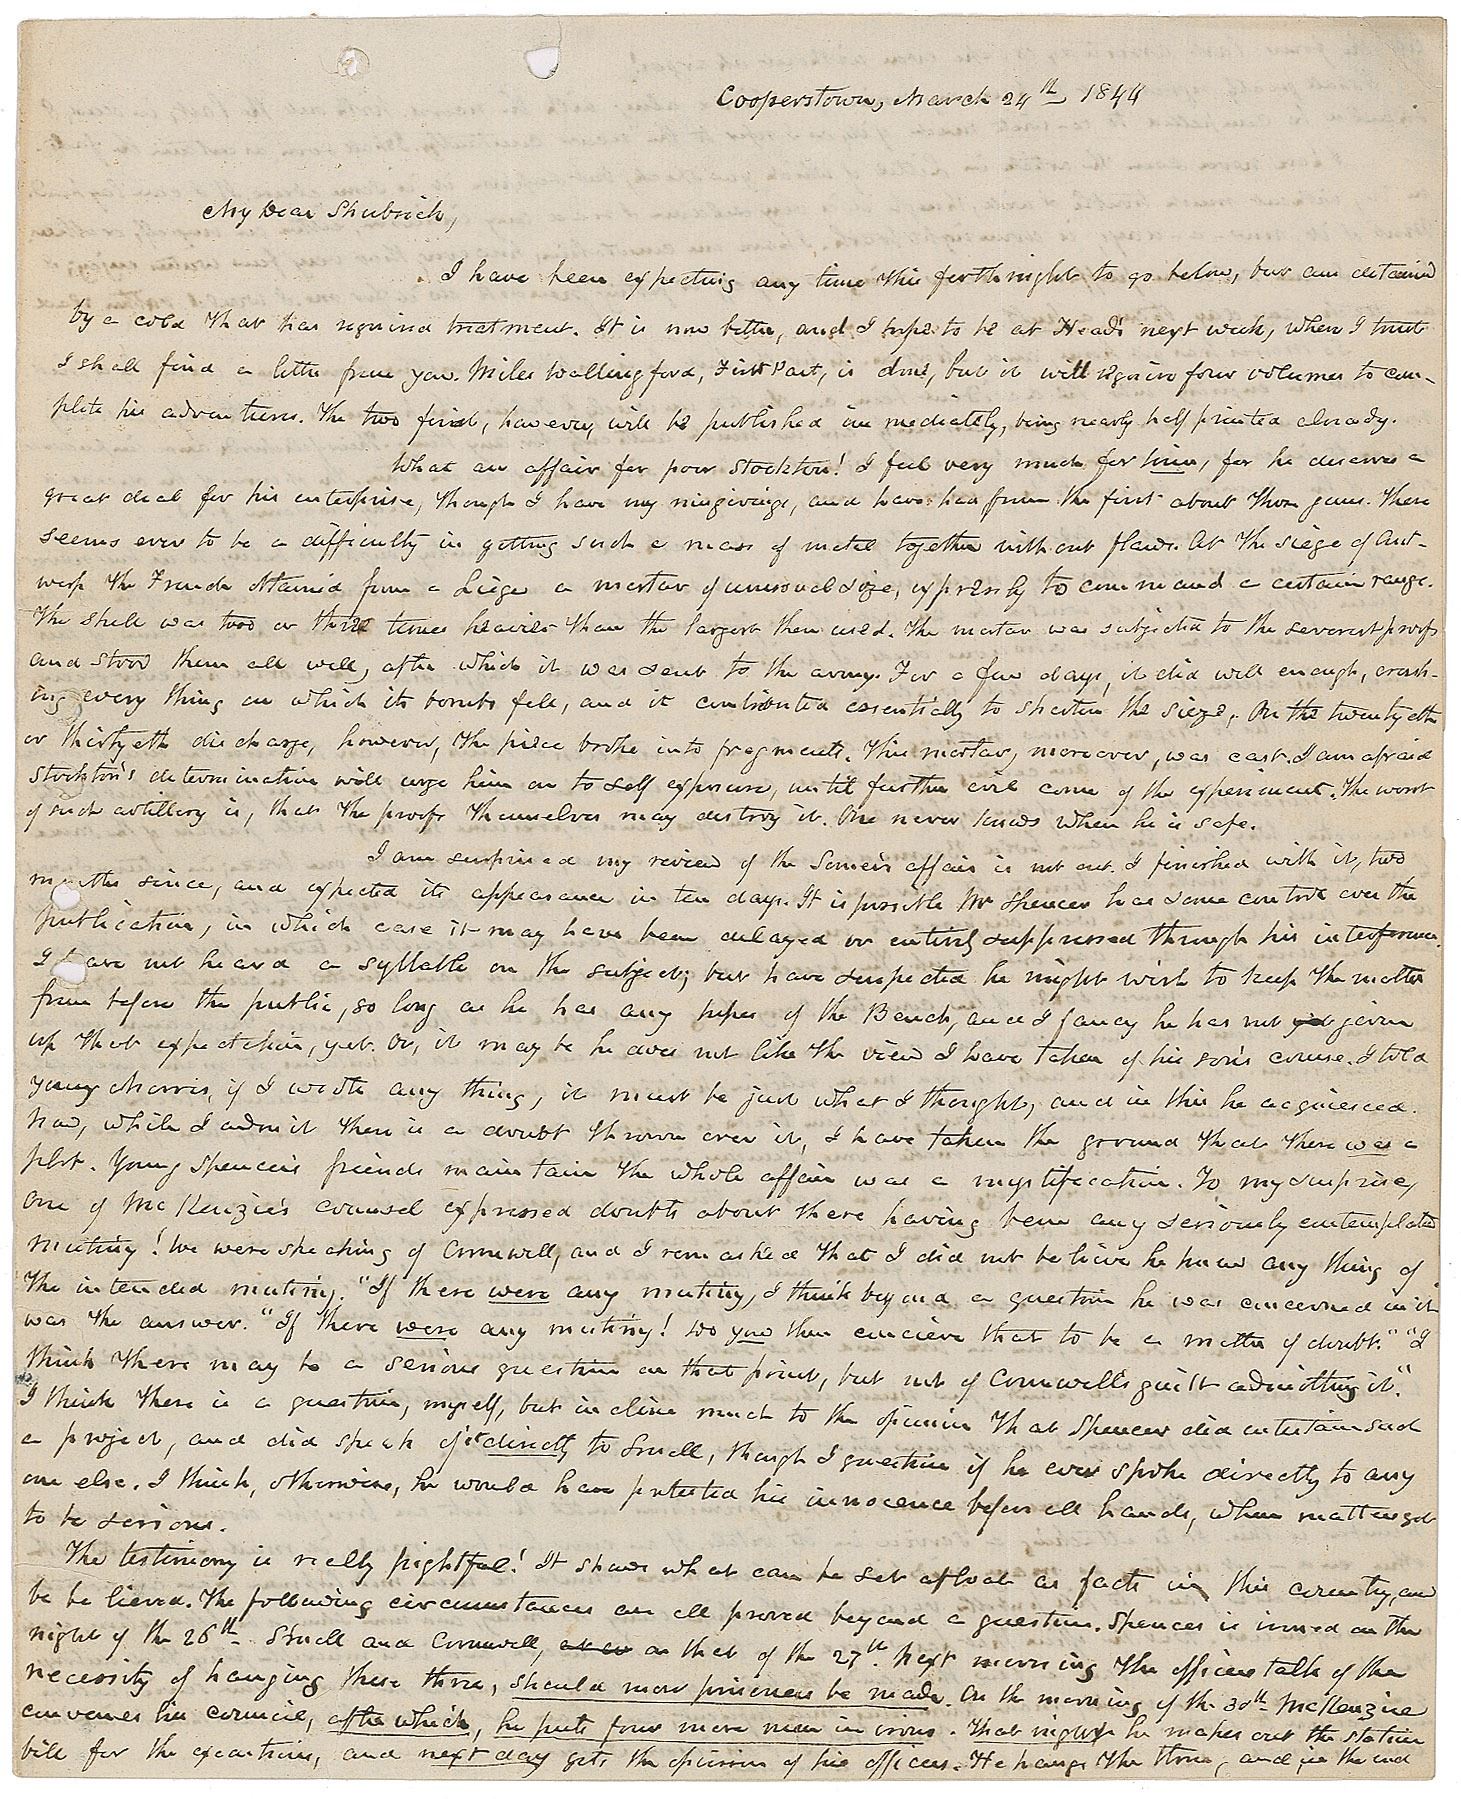 Cooperstown, March 24th 1844
My Dear Shubrick,
I have been expecting any time this forthnight to go below, but am detained
by a cold that has required treatment. It is now better, and I hope to be at Head's next week, where I trust
I shall find a letter from you. Miles Wallingford, First Part, is done, but it will require four volumes to com-
plete his adventures. The two first, however, will be published immediately, being nearly half printed already.
What an affair for poor Stockton! I feel very much for him, for he deserves a
great deal for his enterprise, though I have my misgivings, and have had from the first about those guns. There
seems ever to be a difficulty in getting such a mass of metal together without flaws. At the siege of Ant-
werp the French obtained from a Liège a mortar of unusual size, expressly to command a certain range.
The shell was two or three times heavier than the largest then used. The mortar was subjected to the severest proofs
and stood them all well, after which it was sent to the army. For a few days, it did well enough, crush-
ing every thing on which its bombs fell, and it contributed essentially to shorten the siege. On the twentyeth
or thirtyeth discharge, however, the piece broke into fragments. This mortar, moreover, was cast. I am afraid
Stockton's determination will urge him on to self exposure, until further evil come of the experiment. The worst
of such artillery is, that the proofs themselves may destroy it. One never knows when he is safe.
I am surprised my review of the Somers affair is not out. I finished with it, two
months since, and expected its appearance in ten days. It is possible Mr Spencer has some control over the
publication, in which case it may have been delayed or entirely suppressed through his interference.
I have not heard a syllable on the subject; but have suspected he might wish to keep the matter
from before the public, so long as he has any hopes of the Bench, and I fancy he has not yet given
up that expectation, yet. Or, it may be he does not like the view I have taken of his son's course. I told
young Morris, if I wrote any thing, it must be just what I thought, and in this he acquiesced.
Now, while I admit there is a doubt thrown over it, I have taken the ground that there was a
plot. Young Spencer's friends maintain the whole affair was a mystification. To my surprise,
one of McKenzie's counsel expressed doubts about there having been any seriously contemplated
mutiny! We were speaking of Cromwell, and I remarked that I did not believe he knew any thing of
the intended mutiny. "If there were any mutiny, I think beyond a question he was concerned in it"
was the answer. "If there were any mutiny! Do you then concieve that to be a matter of doubt." "I
think there may be a serious question on that point, but not of Cromwell's guilt admitting it."
I think there is a question, myself, but incline much to the opinion that Spencer did entertain such
a project, and did speak of it directly to Small, though I question if he ever spoke directly to any
one else. I think, otherwise, he would have protested his innocence before all hands, when matters got
to be serious.
The testimony is really frightful! It shows what can be set afloat as facts in this country, and
be believed. The following circumstances are all proved beyond a question. Spencer is ironed on the
night of the 26th Small and Cromwell, on that of the 27th. Next morning the officers talk of the
necessity of hanging these three, should more prisoners be made. On the morning of the 30th McKenzie
convenes his council, after which, he puts four more men in irons. That night he makes out the station
bill for the execution, and next day gets the opinion of his officers. He hangs the three, and, in the end